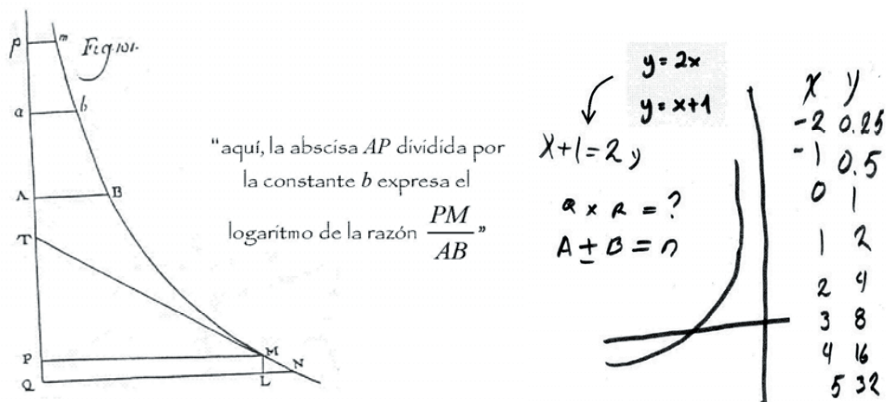 Fig 101.
p m
a b
A B
T
P M
Q L N
"aquí, la abscisa AP dividida por
la constante b expresa el
logaritmo de la razón PM/AB"
y = 2x
y = x+1
x+1 = 2y
A ± B = n
x y
-2 0.25
-1 0.5
0 1
1 2
2 4
3 8
4 16
5 32